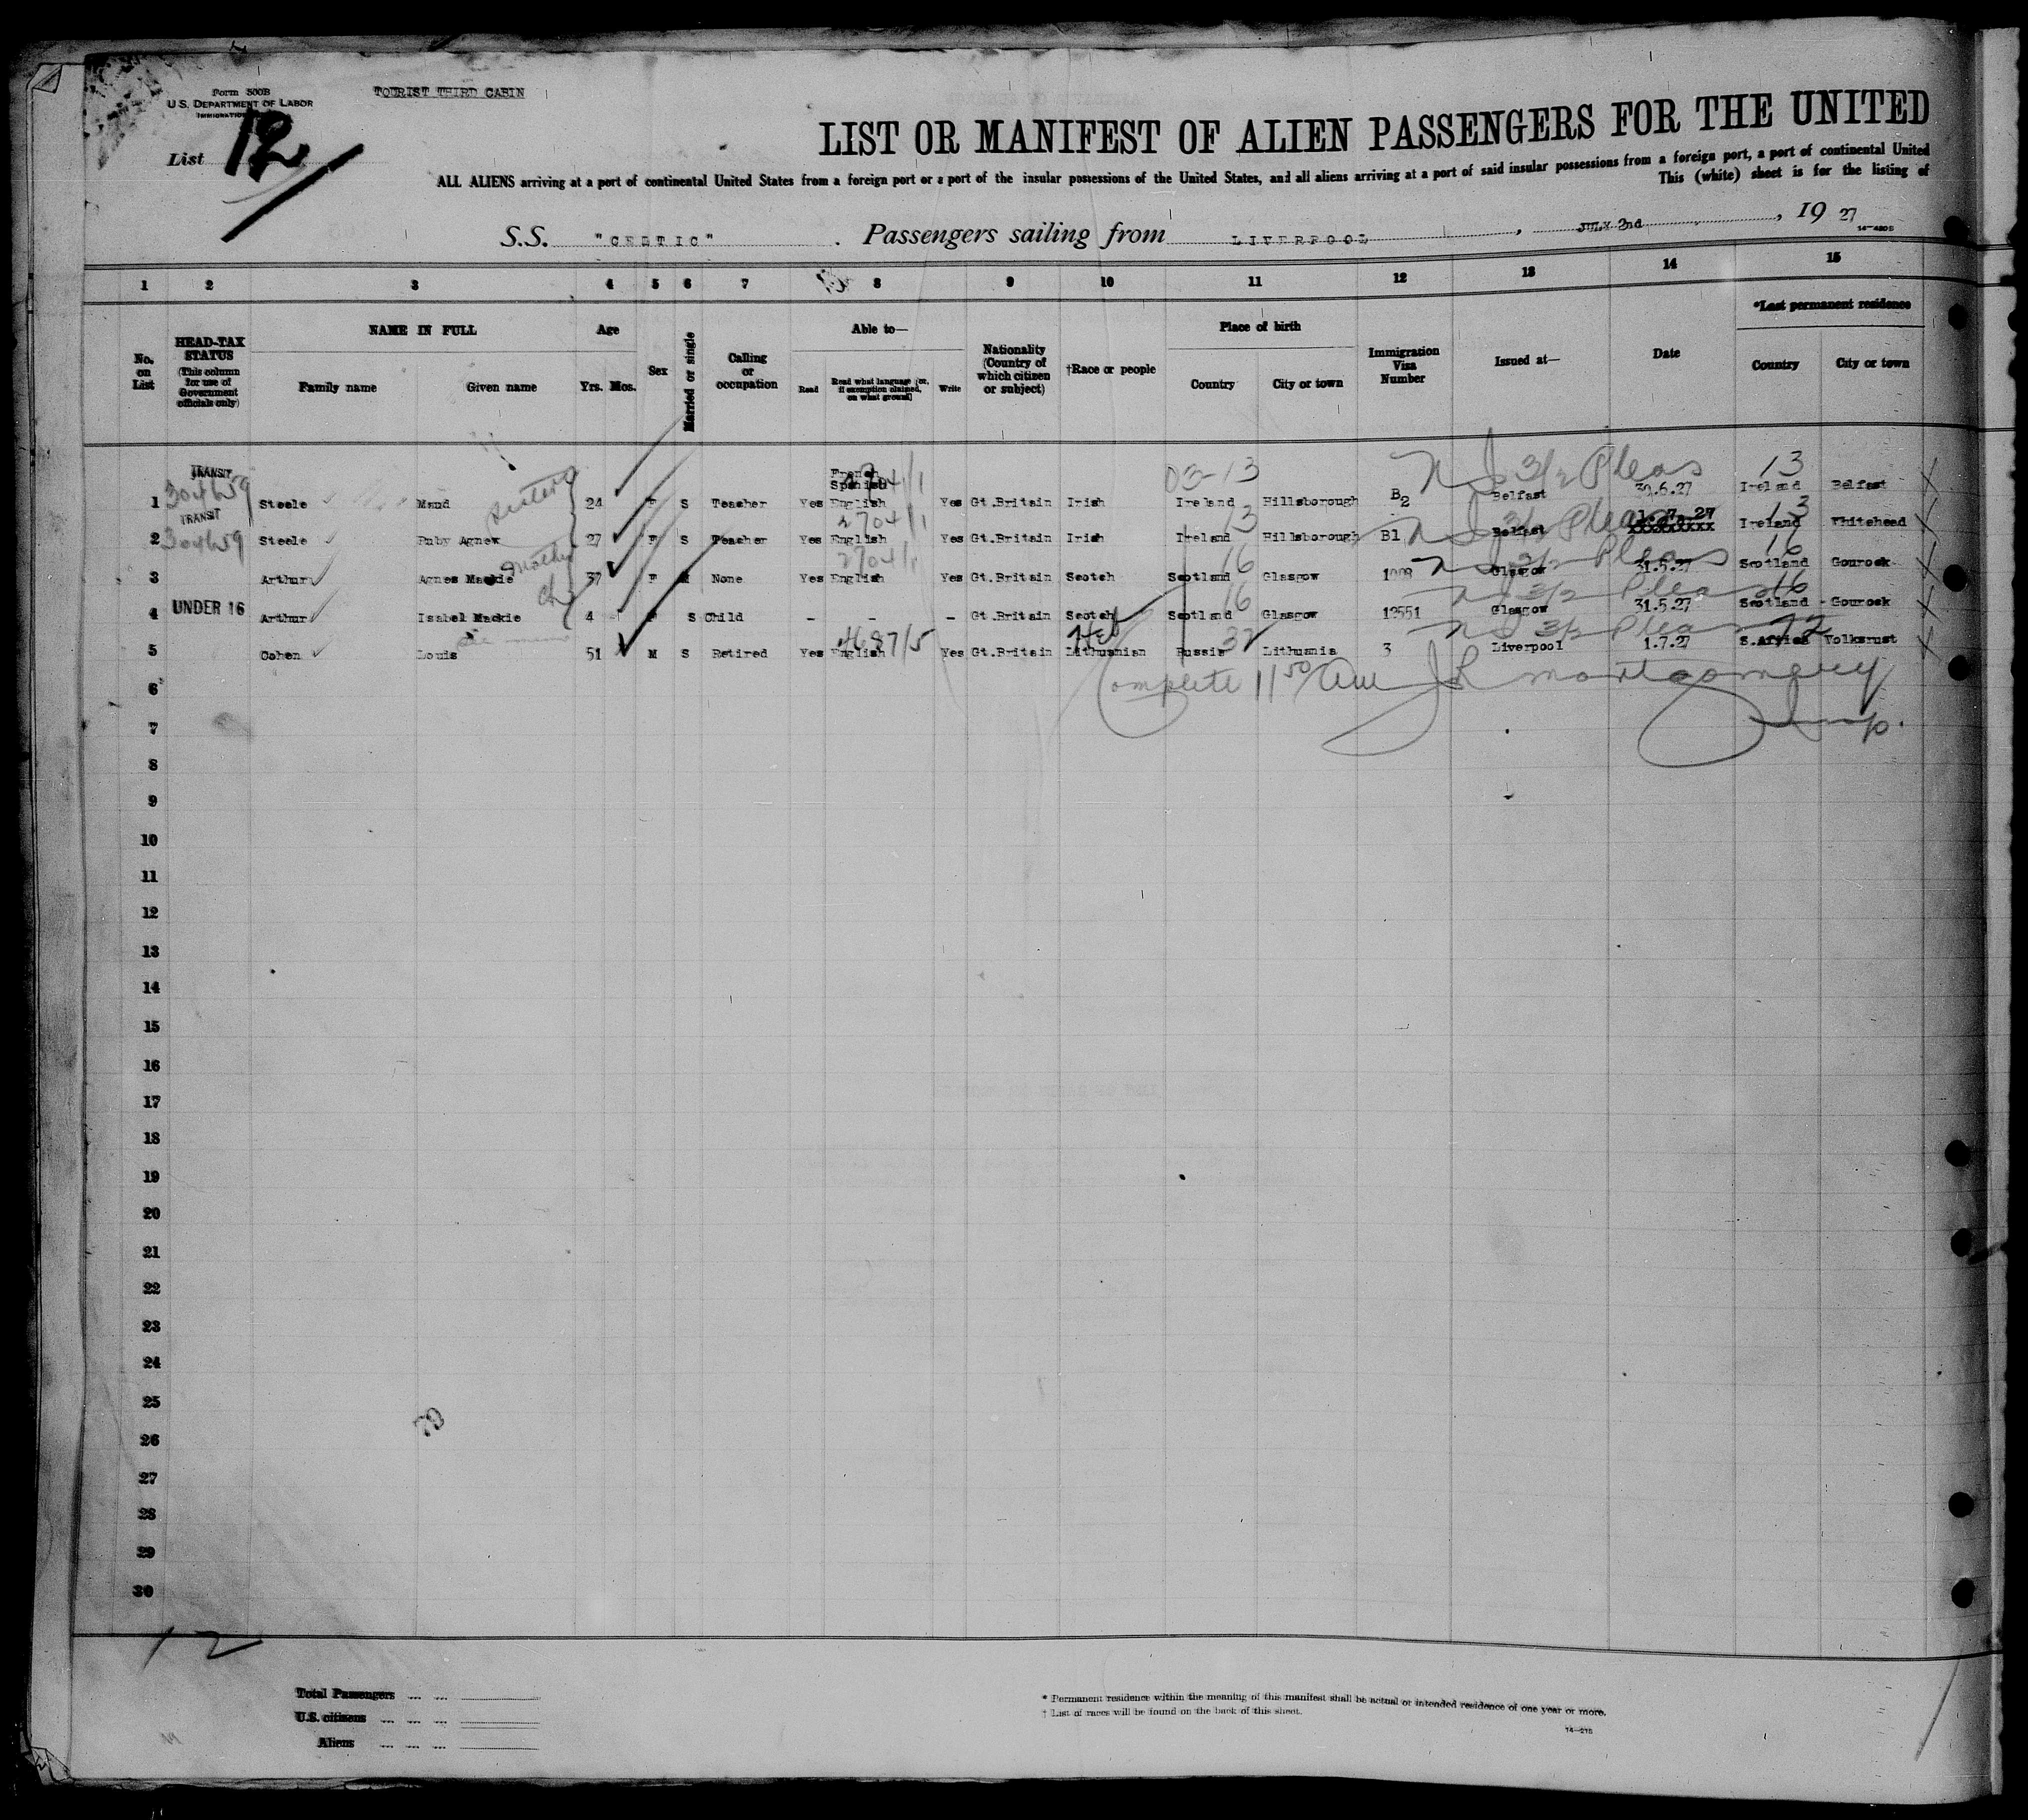 Form 500B
U.S. DEPARTMENT OF LABOR
TOURIST THIRD CABIN
List 12
LIST OR MANIFEST OF ALIEN PASSENGERS FOR THE UNITED
ALL ALIENS arriving at a port of continental United States from a foreign port or a port of the insular possessions of the United States, and all aliens arriving at a port of said insular possessions from a foreign port, a port of continental United
This (white) sheet is for the listing of
S.S. "CELTIC" . Passengers sailing from LIVERPOOL , JULY 2nd , 19 27
1 2 3 4 5 6 7 8 9 10 11 12 13 14 15
No. on List
HEAD-TAX STATUS (This column for use of Government officials only)
NAME IN FULL
Family name Given name
Age
Yrs. Mos.
Sex
Married or single
Calling or occupation
Able to—
Read Read what language (or, if exemption claimed, on what ground) Write
Nationality (Country of which citizen or subject)
†Race or people
Place of birth
Country City or town
Immigration Visa Number
Issued at—
Date
*Last permanent residence
Country City or town
TRANSIT French 2704/1 03-13 13
Spanish
1 304659 Steele Maud sisters 24 F S Teacher Yes English Yes Gt.Britain Irish Ireland Hillsborough B2 Belfast 30.6.27 Ireland Belfast
TRANSIT 2704/1 13 1.7.27 13
2 304659 Steele Ruby Agnew 27 F S Teacher Yes English Yes Gt.Britain Irish Ireland Hillsborough B1 Belfast XXXXXXXXX Ireland Whitehead
mother 2704/1 16 16
3 Arthur Agnes Mackie 37 F M None Yes English Yes Gt.Britain Scotch Scotland Glasgow Glasgow 31.5.27 Scotland Gourock
UNDER 16 ch 16 16
4 Arthur Isabel Mackie 4 F S Child - - - Gt.Britain Scotch Scotland Glasgow 12551 Glasgow 31.5.27 Scotland Gourock
4687/5 Heb 32 72
5 Cohen Louis 51 M S Retired Yes English Yes Gt.Britain Lithuanian Russia Lithuania 3 Liverpool 1.7.27 S.Africa Volksrust
6 Complete 11 50/am J L Montgomery
7 Insp.
8
9
10
11
12
13
14
15
16
17
18
19
20
21
22
23
24
25
26
27
28
29
30
12
Total Passengers
U.S. citizens
Aliens
* Permanent residence within the meaning of this manifest shall be actual or intended residence of one year or more.
† List of races will be found on the back of this sheet.